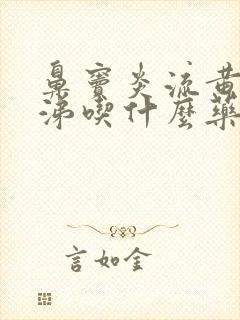 鼻窦炎流黄
涕喫什麼藥
言如金